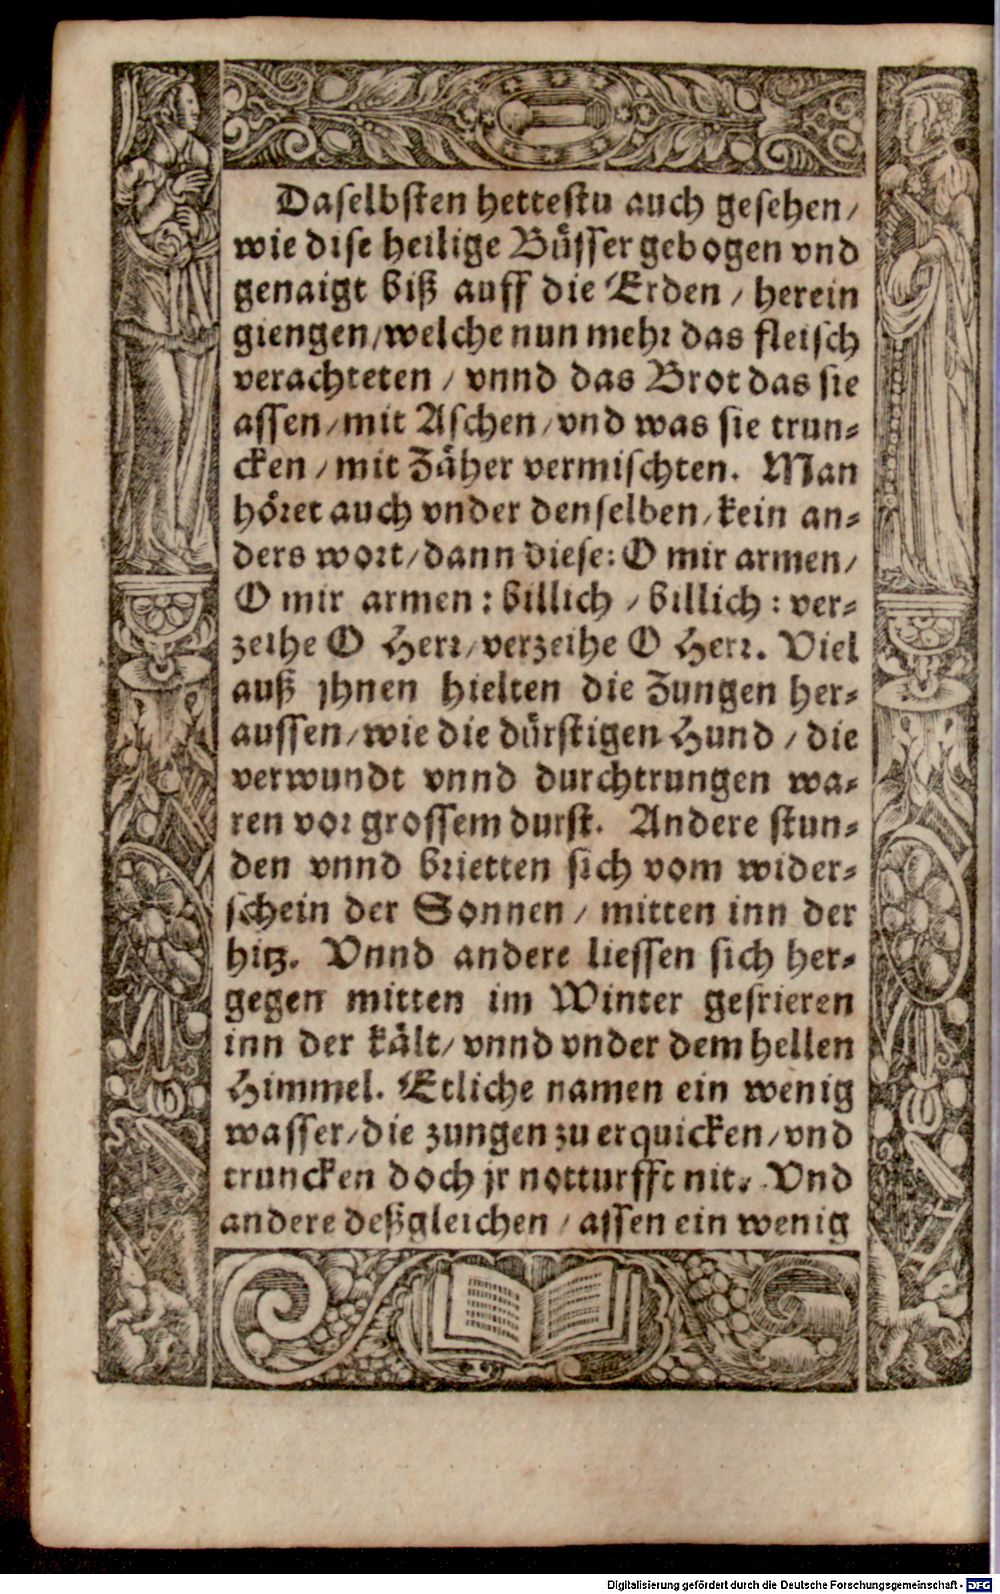 Daselbsten hettestu auch gesehen/
wie dise heilige Büsser gebogen vnd
genaigt biß auff die Erden / herein
giengen/welche nun mehr das fleisch
verachteten / vnnd das Brot das sie
assen/mit Aschen/vnd was sie trun-
cken /mit Zäher vermischten. Man
höret auch vnder denselben/kein an-
ders wort/dann diese: O mir armen/
O mir armen: billich / billich: ver-
zeihe O Herr/verzeihe O Herr. Viel
auß jhnen hielten die Zungen her-
aussen/wie die dürstigen Hund / die
verwundt vnnd durchtrungen wa-
ren vor grossem durst. Andere stun-
den vnnd brietten sich vom wider-
schein der Sonnen / mitten inn der
hitz. Vnnd andere liessen sich her-
gegen mitten im Winter gefrieren
inn der kält/ vnnd vnder dem hellen
Himmel. Etliche namen ein wenig
wasser/die zungen zu erquicken/vnd
truncken doch jr notturfft nit. Vnd
andere deßgleichen / assen ein wenig
Digitalisierung gefördert durch die Deutsche Forschungsgemeinschaft - DFG